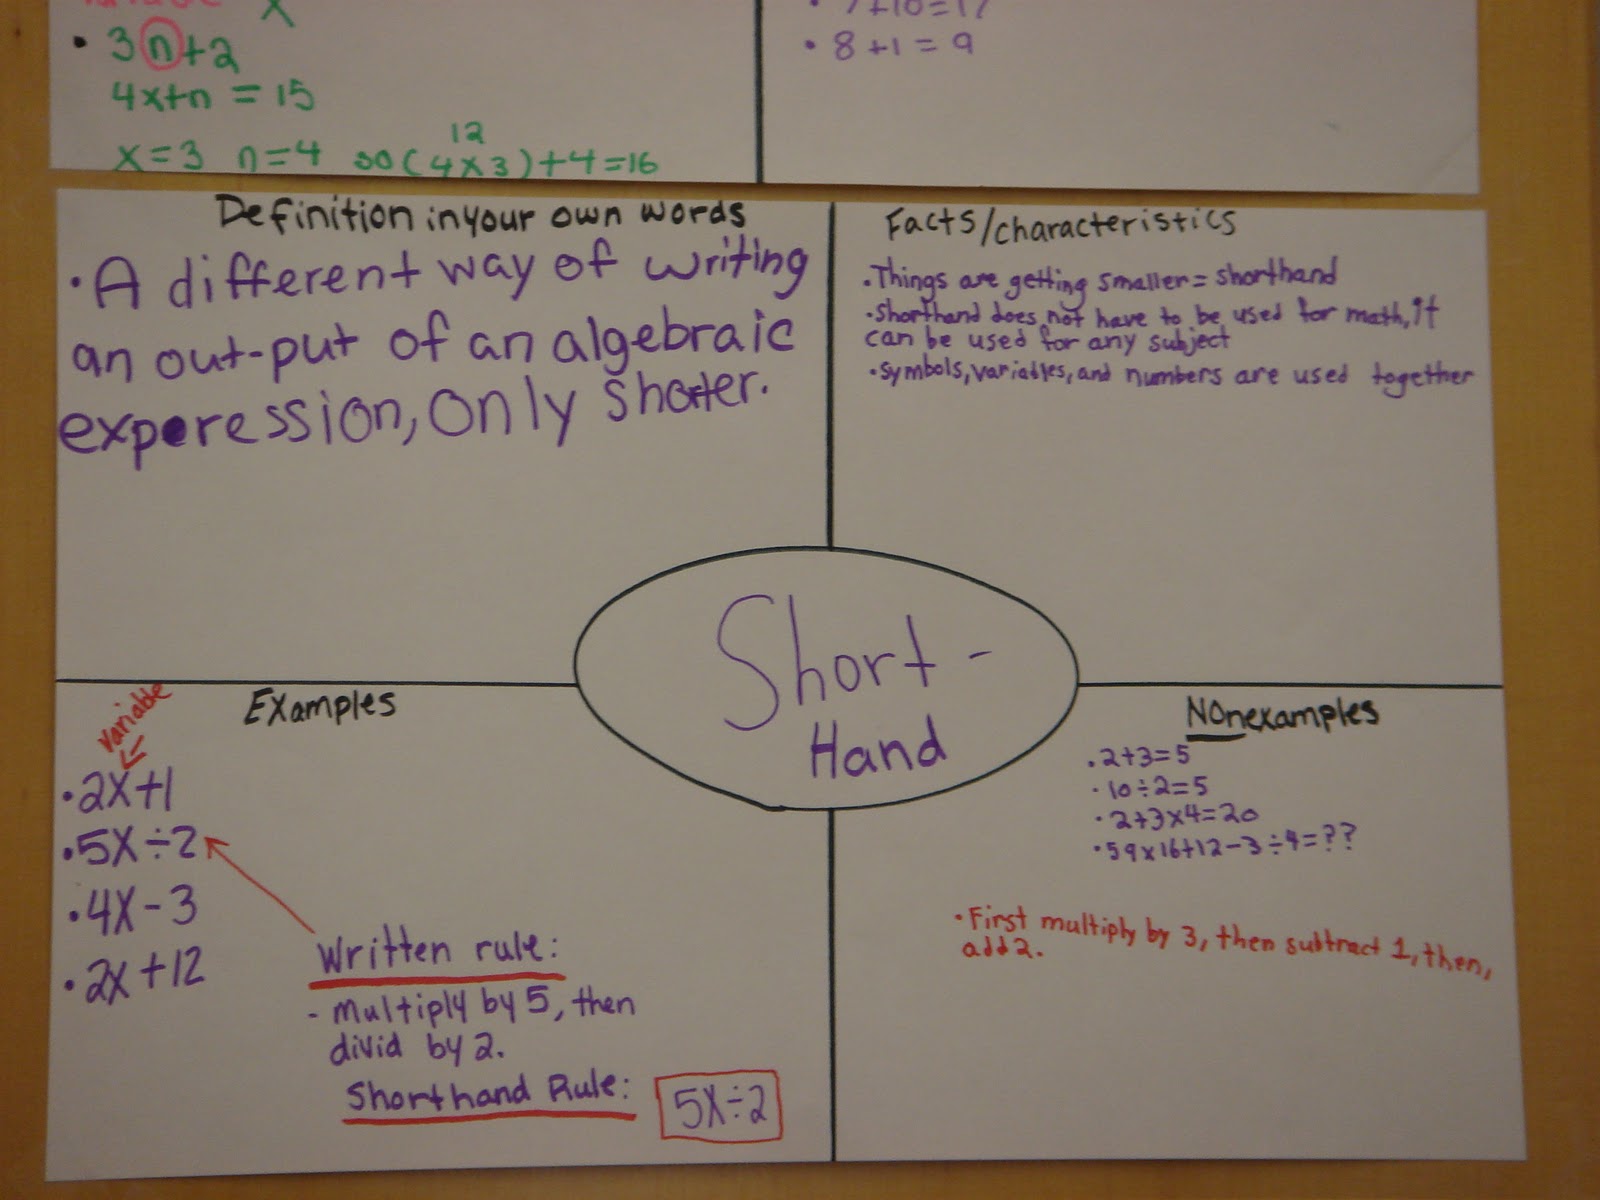 x
• 3n+2
4x+n = 15
12
x=3 n=4 so (4x3)+4=16
• 7+10=17
• 8+1=9
Definition in your own words
• A different way of writing
an out-put of an algebraic
experession, only shorter.
Facts/characteristics
• Things are getting smaller = shorthand
• Shorthand does not have to be used for math, it
can be used for any subject
• Symbols, variables, and numbers are used together
Short-
Hand
Examples
variable
• 2x+1
• 5x÷2
• 4x-3
• 2x+12
Written rule:
- Multiply by 5, then
divid by 2.
Shorthand Rule:
5x÷2
Nonexamples
• 2+3=5
• 10÷2=5
• 2+3x4=20
• 59x16+12-3÷4=??
• First multiply by 3, then subtract 1, then,
add 2.